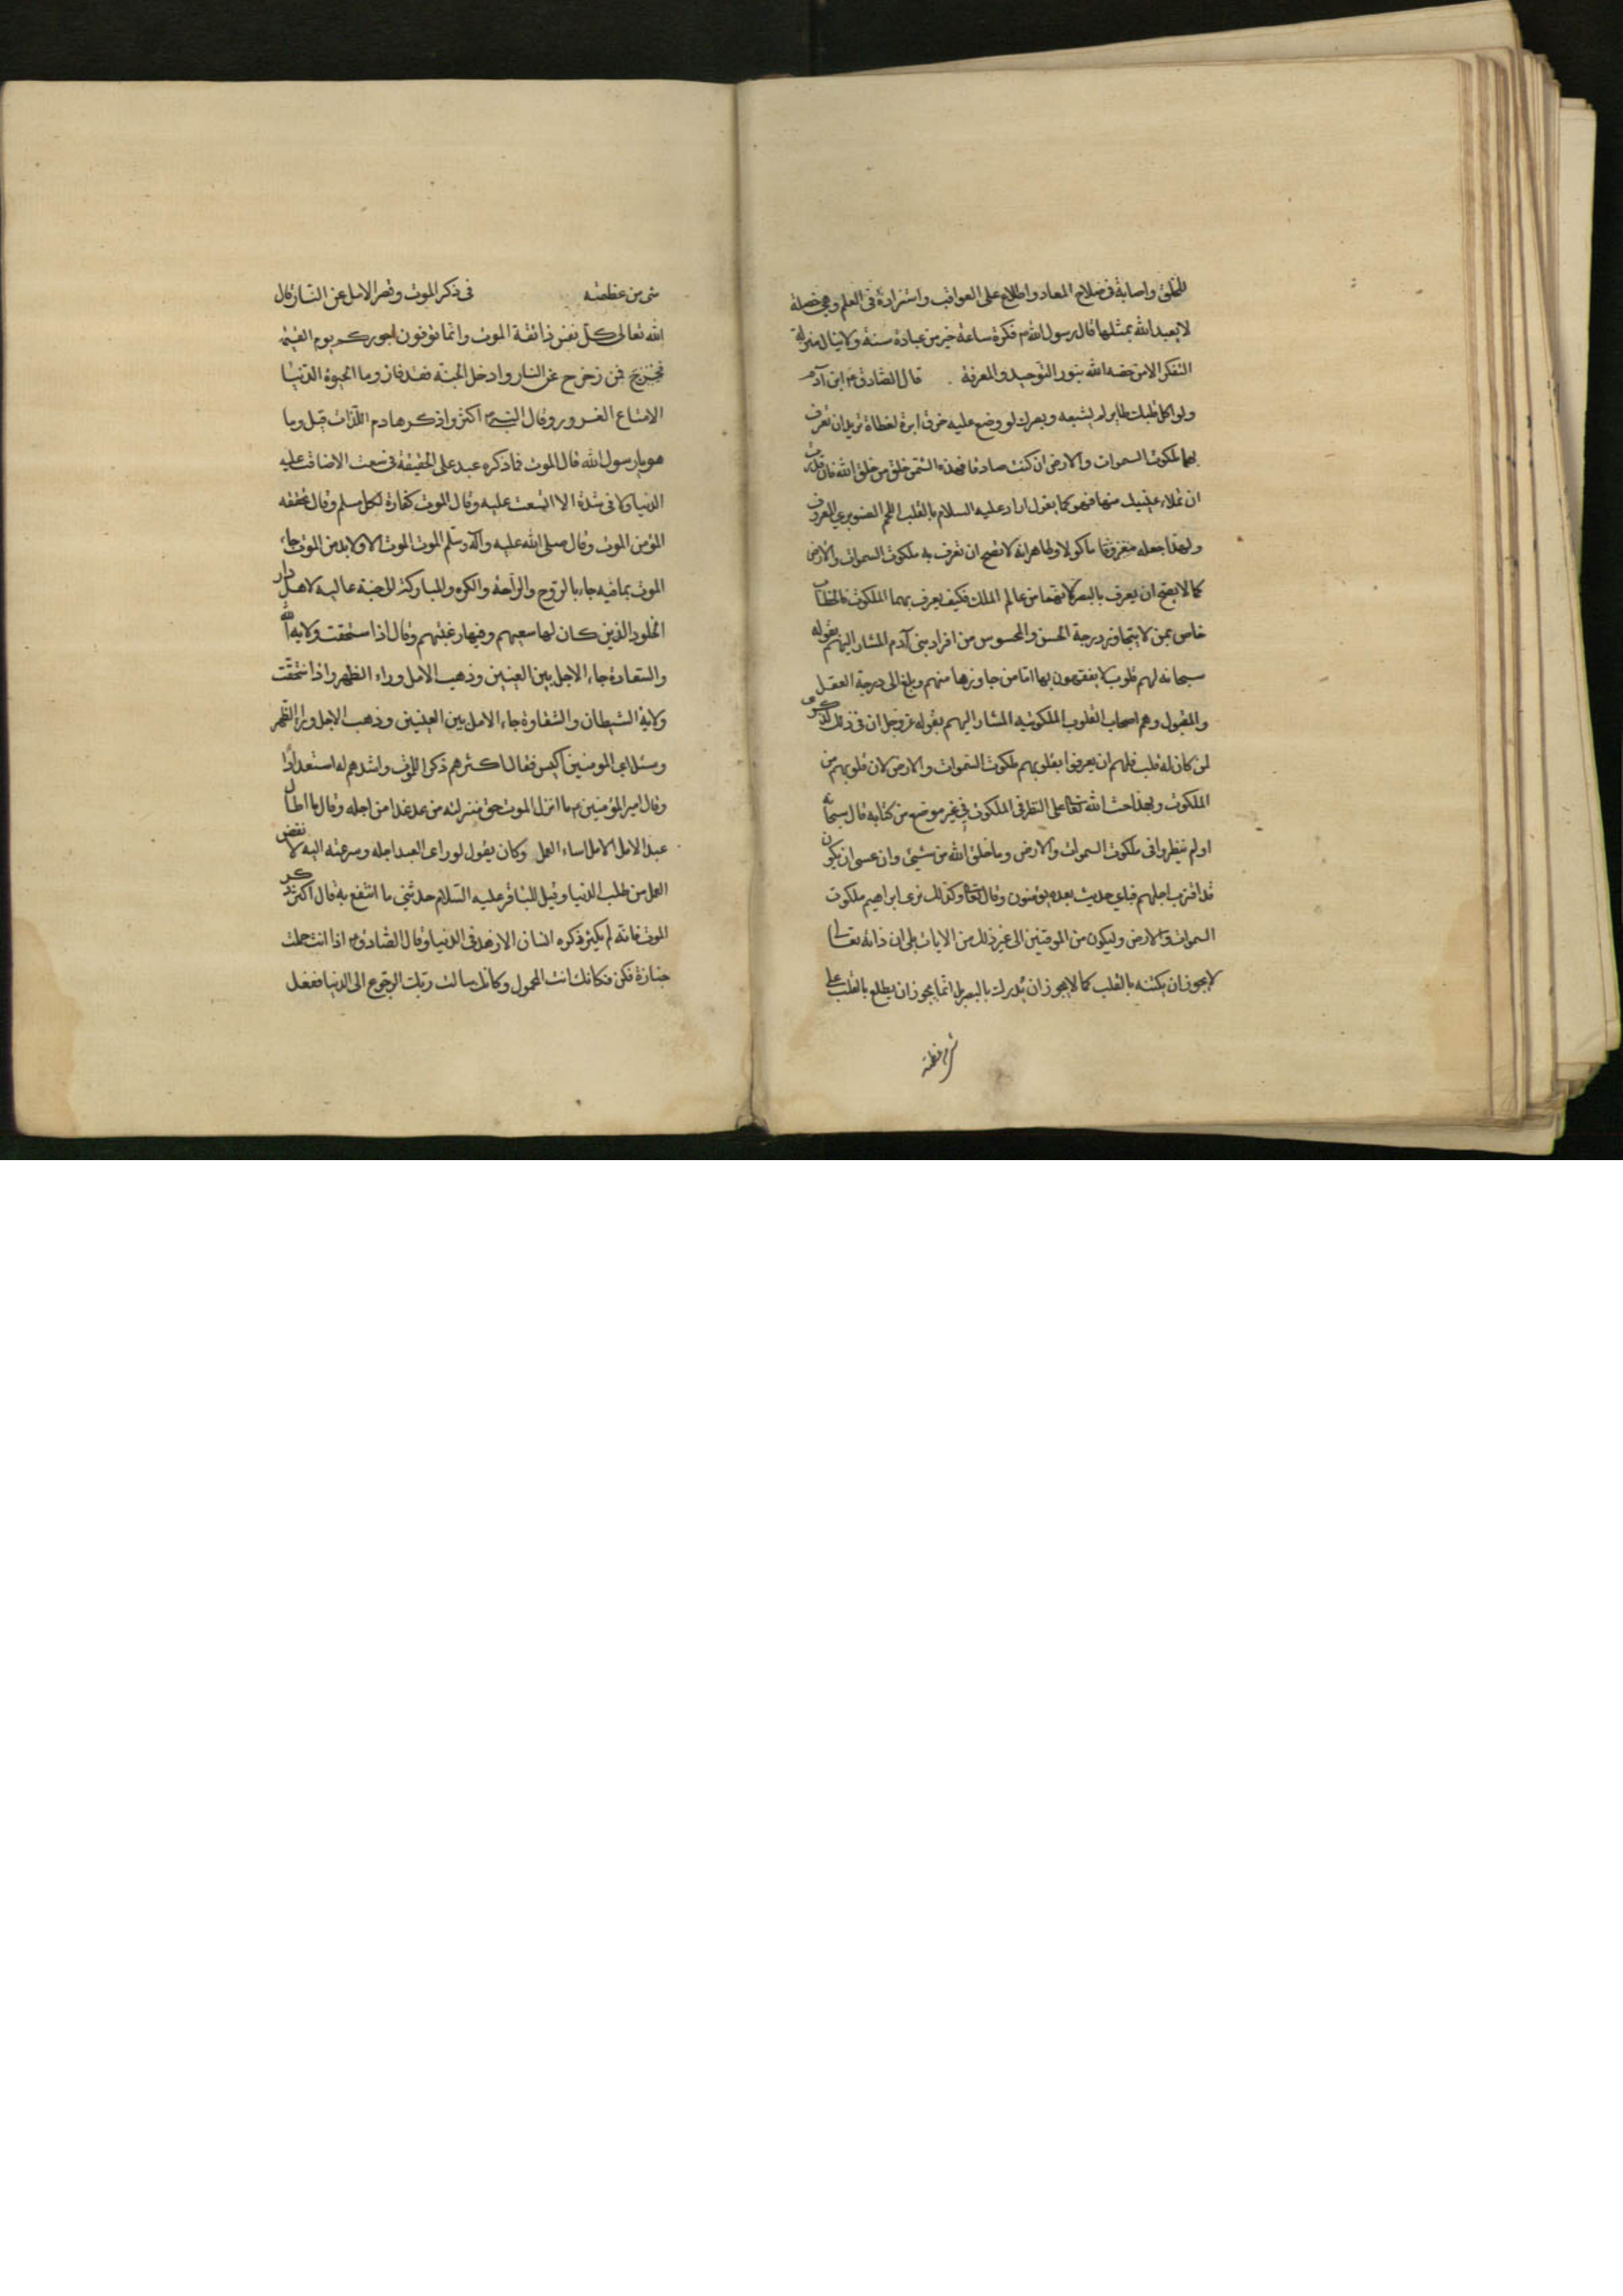 للخلق واصابة فی صلاح المعاد واطلاع علی العواقب واستزادة فی العلم وهی خصلة
لا یعبد الله بمثلها قال رسول الله ص فکرة ساعة خیر من عبادة سنة ولا ینال منزلة
التفکر الا من خصه الله بنور التوحید والمعرفة . قال الصادق ع ابن آدم
ولو اکل قلبک طایر لم یشبعه وبصرک لو وضع علیه خرق ابرة لغطاه ترید ان تعرف
بهما ملکوت السموات والارض ان کنت صادقا فهذه الشمس خلق من خلق الله فان قدرت
ان تملاء عینیک منها فهو کما یقول اراد علیه السلام بالقلب اللحم الصنوبری المعروف
ولهذا جعله ماکولا وظاهر انه لا یصح ان تعرف به ملکوت السموات والارض
کما لا یصح ان یعرف بالبصر لانهما من عالم الملک فکیف یعرف بهما الملکوت فالخطاب
خاص بمن لا یتجاوز درجة الحس والمحسوس من افراد بنی آدم المشار الیهم بقوله
سبحانه لهم قلوب لا یفقهون بها اما من جاوزها منهم وبلغ الی درجة العقل
والمقول وهم اصحاب القلوب الملکوتیة المشار الیهم بقوله عز وجل ان فی ذلک لذکری
لمن کان له قلب فلهم ان یعرفوا بقلوبهم ملکوت السموات والارض لان قلوبهم من
الملکوت وبهذا حث الله تعا علی النظر فی الملکوت فی غیر موضع من کتابه قال سبحانه
اولم ینظروا فی ملکوت السموات والارض وما خلق الله من شیئ وان عسی ان یکون
قد اقترب اجلهم فبای حدیث بعده یؤمنون وقال تعا وکذلک نری ابراهیم ملکوت
السموات والارض ولیکون من الموقنین الی غیر ذلک من الایات بلی ان ذاته تعالی
لا یجوز ان یکتنه بالقلب کما لا یجوز ان یدرک بالبصر بل انما یجوز ان یطلع بالقلب علی
شی من عظمته
شی من عظمته فی ذکر الموت وقصر الامل عن النساز قال
الله تعالی کل نفس ذائقة الموت وانما توفون اجورکم یوم القیمة
فمن زحزح عن النار وادخل الجنة فقد فاز وما الحیوة الدنیا
الا متاع الغرور وقال النبی ص اکثروا ذکر هادم اللذات قیل وما
هو یا رسول الله قال الموت فما ذکره عبد علی الحقیقة فی سعة الا ضاقت علیه
الدنیا ولا فی شدة الا اتسعت علیه وقال الموت کفارة لکل مسلم وقال تحفة
المؤمن الموت وقال صلی الله علیه وآله وسلم الموت الموت الا ولابد من الموت جاء
الموت بما فیه جاء بالروح والراحة والکره والمبارکة الی جنة عالیة لاهل دار
الخلود الذین کان لها سعیهم وفیها رغبتهم وقال اذا استحقت ولایة الله
والسعادة جاء الاجل بین العینین وذهب الامل وراء الظهر واذا استحقت
ولایة الشیطان والشقاوة جاء الامل بین العینین وذهب الاجل وراء الظهر
وسئل ای المومنین اکیس فقال اکثرهم ذکرا للموت واشدهم له استعدادا
وقال امیر المؤمنین ع ما انزل الموت حق منزلته من عد غدا من اجله وقال ما اطال
عبد الامل الا اساء العمل وکان یقول لو رای العبد اجله وسرعته الیه لا بغض
العمل من طلب الدنیا وقیل للباقر علیه السلام حدثنی ما انتفع به قال اکثر ذکر
الموت فانه لم یکثر ذکره انسان الا زهد فی الدنیا وقال الصادق ع اذا انت حملت
جنازة فکن فکانک انت المحمول وکانک سالت ربک الرجوع الی الدنیا ففعل